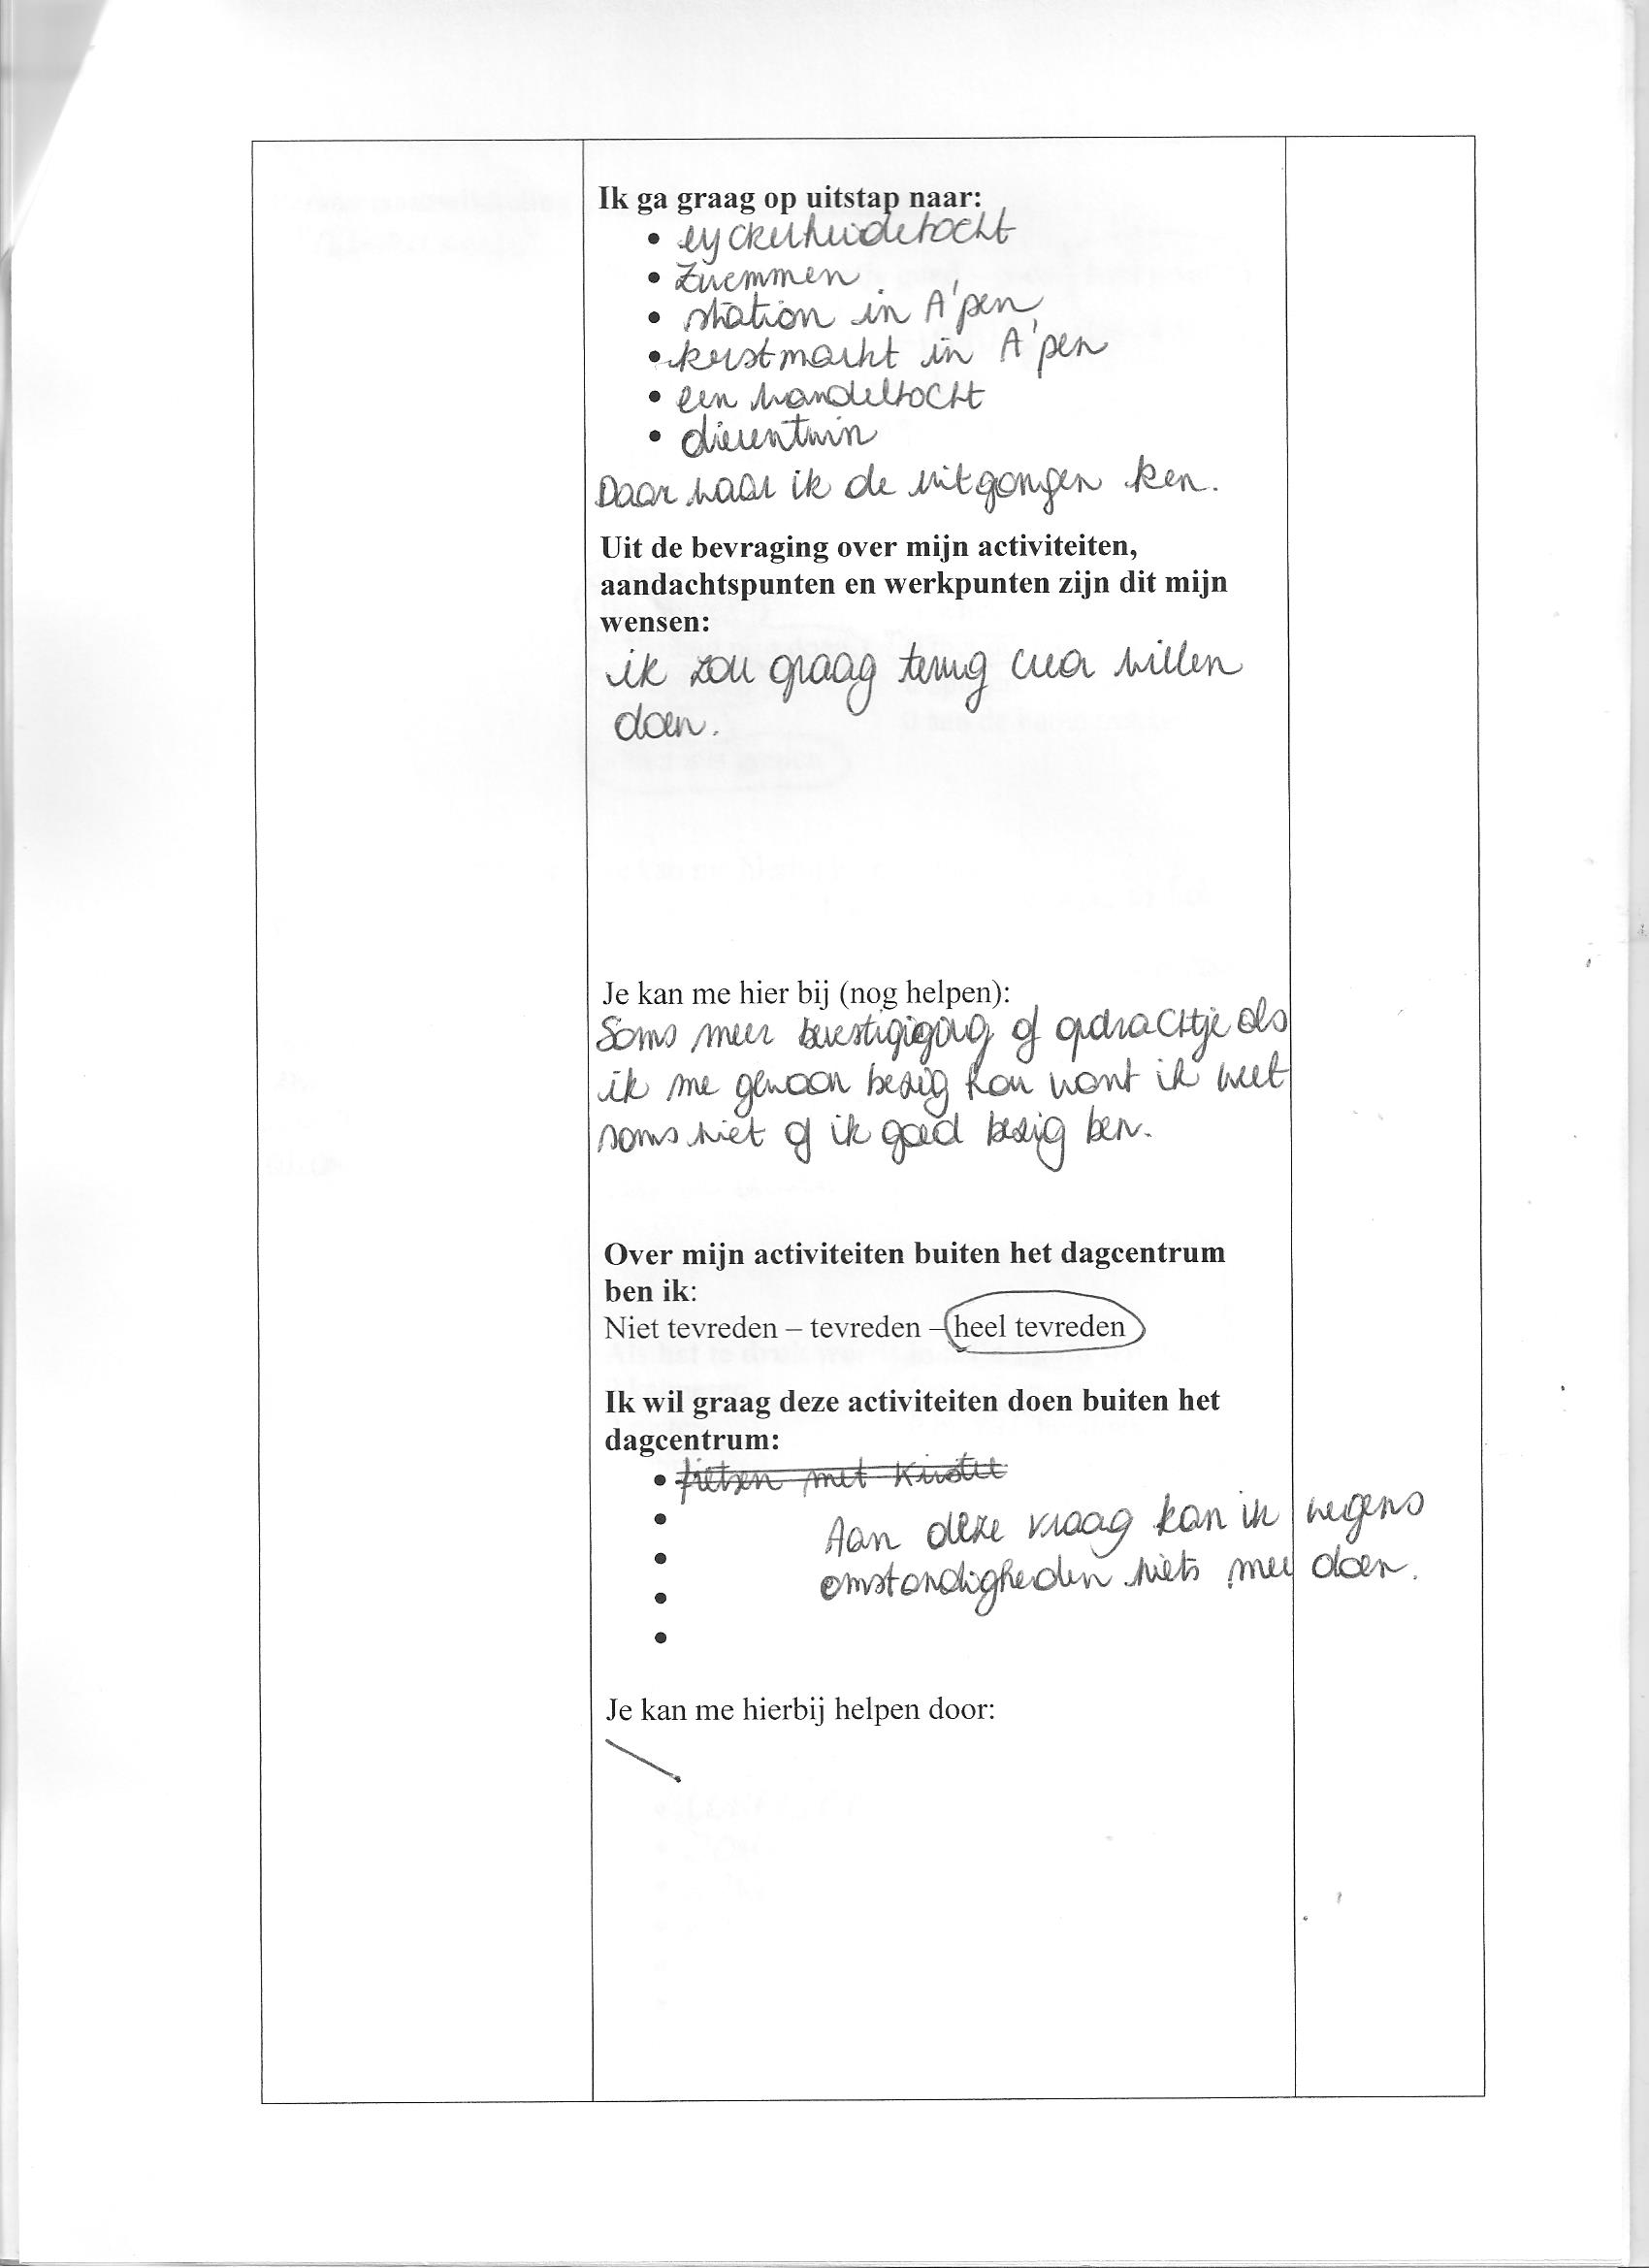 Ik ga graag op uitstap naar:
• eyckerheidetocht
• zwemmen
• station in A'pen
• kerstmarkt in A'pen
• een wandeltocht
• dierentuin
Daar waar ik de uitgangen ken.
Uit de bevraging over mijn activiteiten,
aandachtspunten en werkpunten zijn dit mijn
wensen:
ik zou graag terug crea willen
doen.
Je kan me hier bij (nog helpen):
Soms meer bevestigiging of opdrachtje als
ik me gewoon bezig hou want ik weet
soms niet of ik goed bezig ben.
Over mijn activiteiten buiten het dagcentrum
ben ik:
Niet tevreden – tevreden – heel tevreden
Ik wil graag deze activiteiten doen buiten het
dagcentrum:
• fietsen met
•
Aan deze vraag kan ik wegens
•
omstandigheden niets mee doen.
•
•
Je kan me hierbij helpen door: